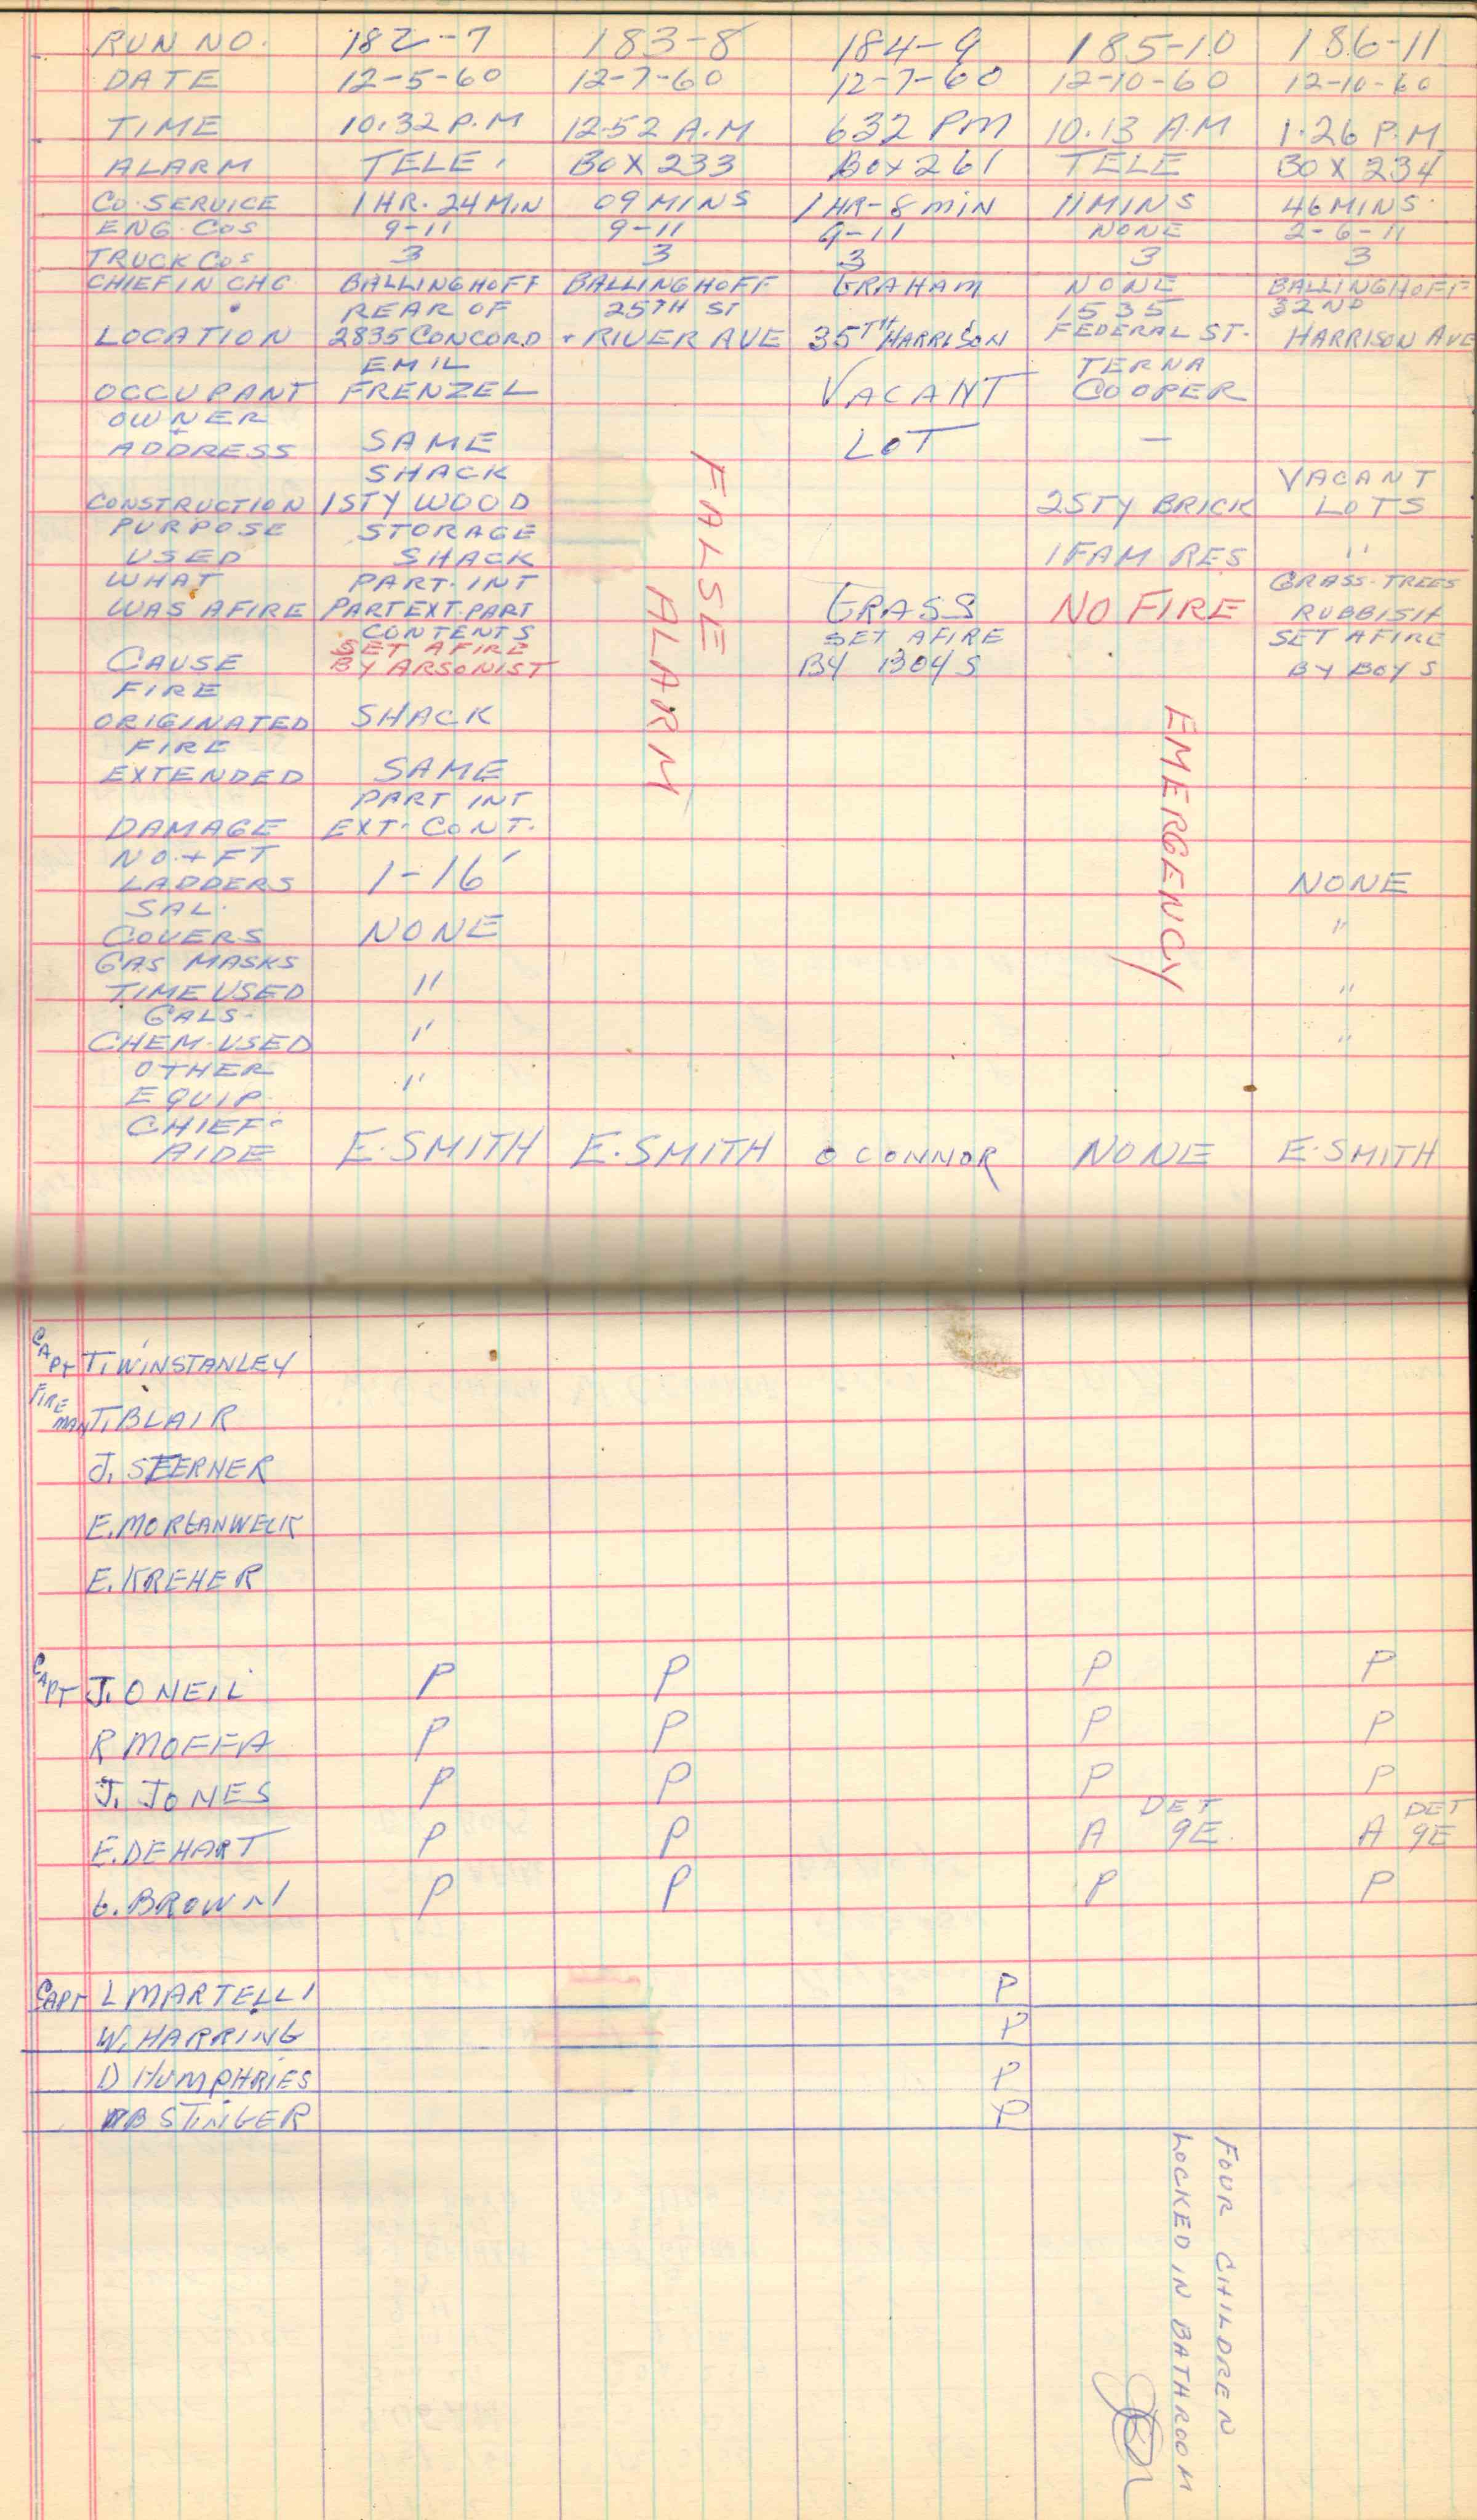 RUN NO. 182-7 183-8 184-9 185-10 186-11
DATE 12-5-60 12-7-60 12-7-60 12-10-60 12-10-60
TIME 10:32 P.M 12:52 A.M 632 PM 10.13 A.M 1.26 P.M.
ALARM TELE. BOX 233 BOX 261 TELE BOX 234
CO. SERVICE 1 HR. 24 MIN 09 MINS 1 HR-8 MIN 11 MINS 46 MINS.
ENG. COS 9-11 9-11 9-11 NONE 2-6-11
TRUCK COS 3 3 3 3 3
CHIEF IN CHG BALLINGHOFF BALLINGHOFF GRAHAM NONE BALLINGHOFF
REAR OF 25TH ST 1535 32ND
LOCATION 2835 CONCORD + RIVER AVE 35TH HARRISON FEDERAL ST. HARRISON AVE
EMIL TERNA
OCCUPANT FRENZEL VACANT COOPER
OWNER
+
ADDRESS SAME LOT —
SHACK VACANT
CONSTRUCTION 1 STY WOOD 2 STY BRICK LOTS
PURPOSE STORAGE
USED SHACK 1 FAM RES "
WHAT PART. INT GRASS-TREES
WAS AFIRE PART EXT. PART GRASS NO FIRE RUBBISH
CONTENTS SET AFIRE SET AFIRE
SET AFIRE
CAUSE BY ARSONIST BY BOYS BY BOYS
FIRE
ORIGINATED SHACK
FIRE
EXTENDED SAME
PART INT
DAMAGE EXT. CONT.
NO. + FT
LADDERS 1-16' NONE
SAL.
COVERS NONE "
GAS MASKS
TIME USED " "
GALS.
CHEM. USED " "
OTHER
EQUIP. "
CHIEF-
AIDE E. SMITH E. SMITH O CONNOR NONE E. SMITH
FALSE
ALARM
EMERGENCY
CAPT T. WINSTANLEY
FIRE
MAN T. BLAIR
J. STERNER
E. MORGANWECK
E. KREHER
CAPT J. ONEIL P P P P
R MOFFA P P P P
J. JONES P P P P
DET DET
E. DEHART P P A 9E. A 9E
G. BROWN P P P P
CAPT L MARTELLI P
W. HARRING P
D HUMPHRIES P
B STINGER P
FOUR CHILDREN
LOCKED IN BATHROOM